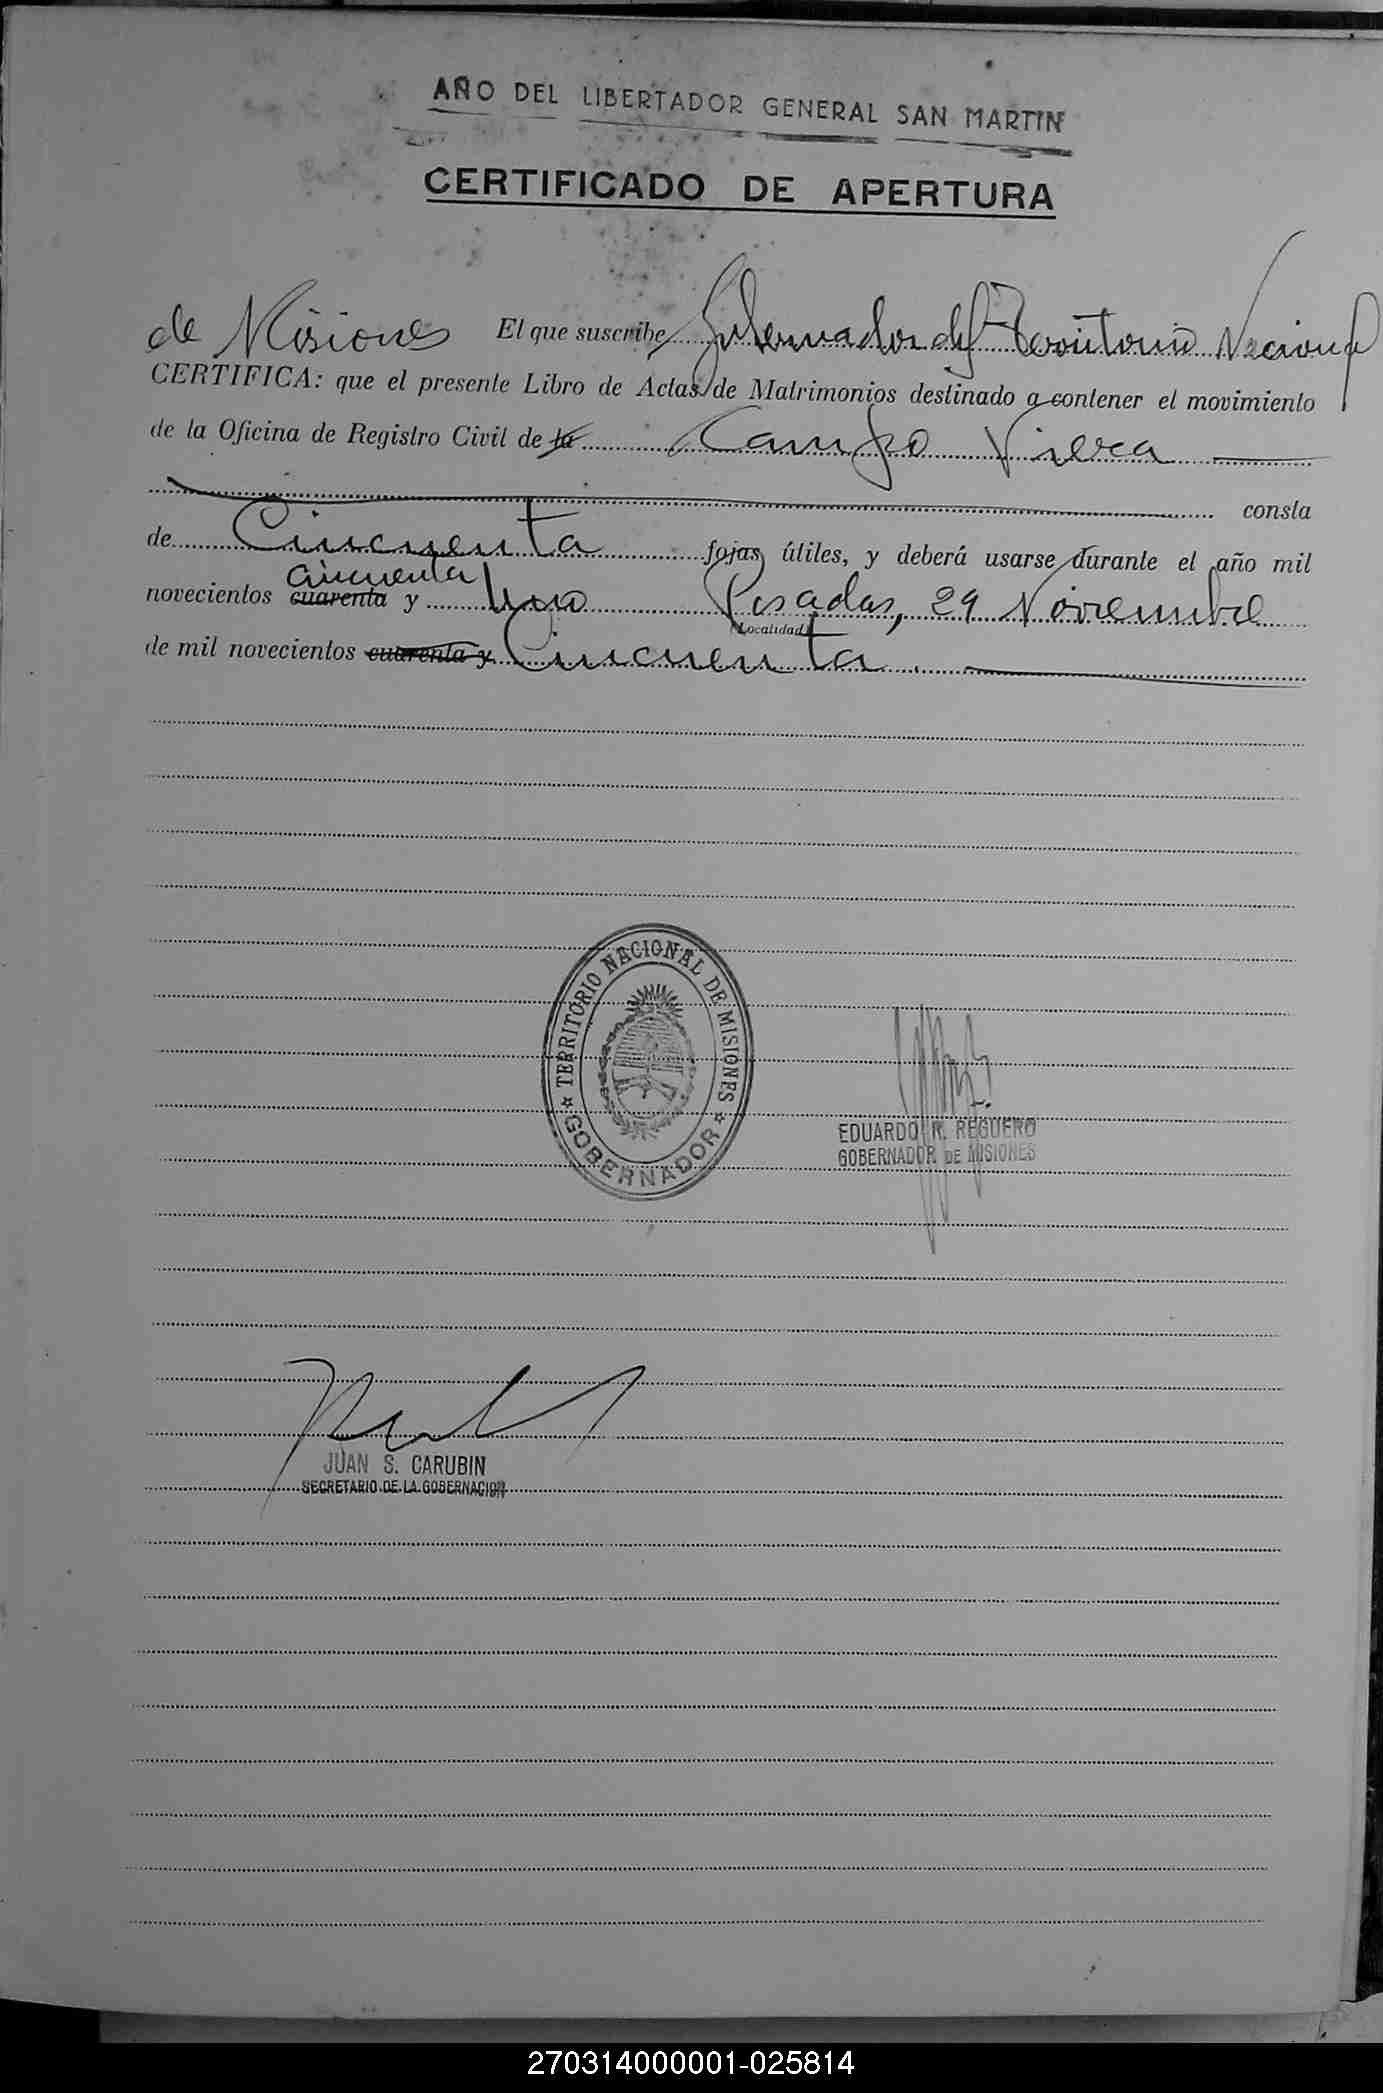 AÑO DEL LIBERTADOR GENERAL SAN MARTIN
CERTIFICADO DE APERTURA
El que suscribe Gobernador del Territorio Nacional
de Misiones
CERTIFICA: que el presente Libro de Actas de Matrimonios destinado a contener el movimiento
de la Oficina de Registro Civil de la Campo Viera
consta
de Cincuenta fojas útiles, y deberá usarse durante el año mil
cincuenta
novecientos cuarenta y Uno Posadas, 29 Noviembre
(Localidad)
de mil novecientos cuarenta y Cincuenta.
TERRITORIO NACIONAL DE MISIONES
GOBERNADOR
EDUARDO R. REGUERO
GOBERNADOR DE MISIONES
JUAN S. CARUBIN
SECRETARIO DE LA GOBERNACION
270314000001-025814